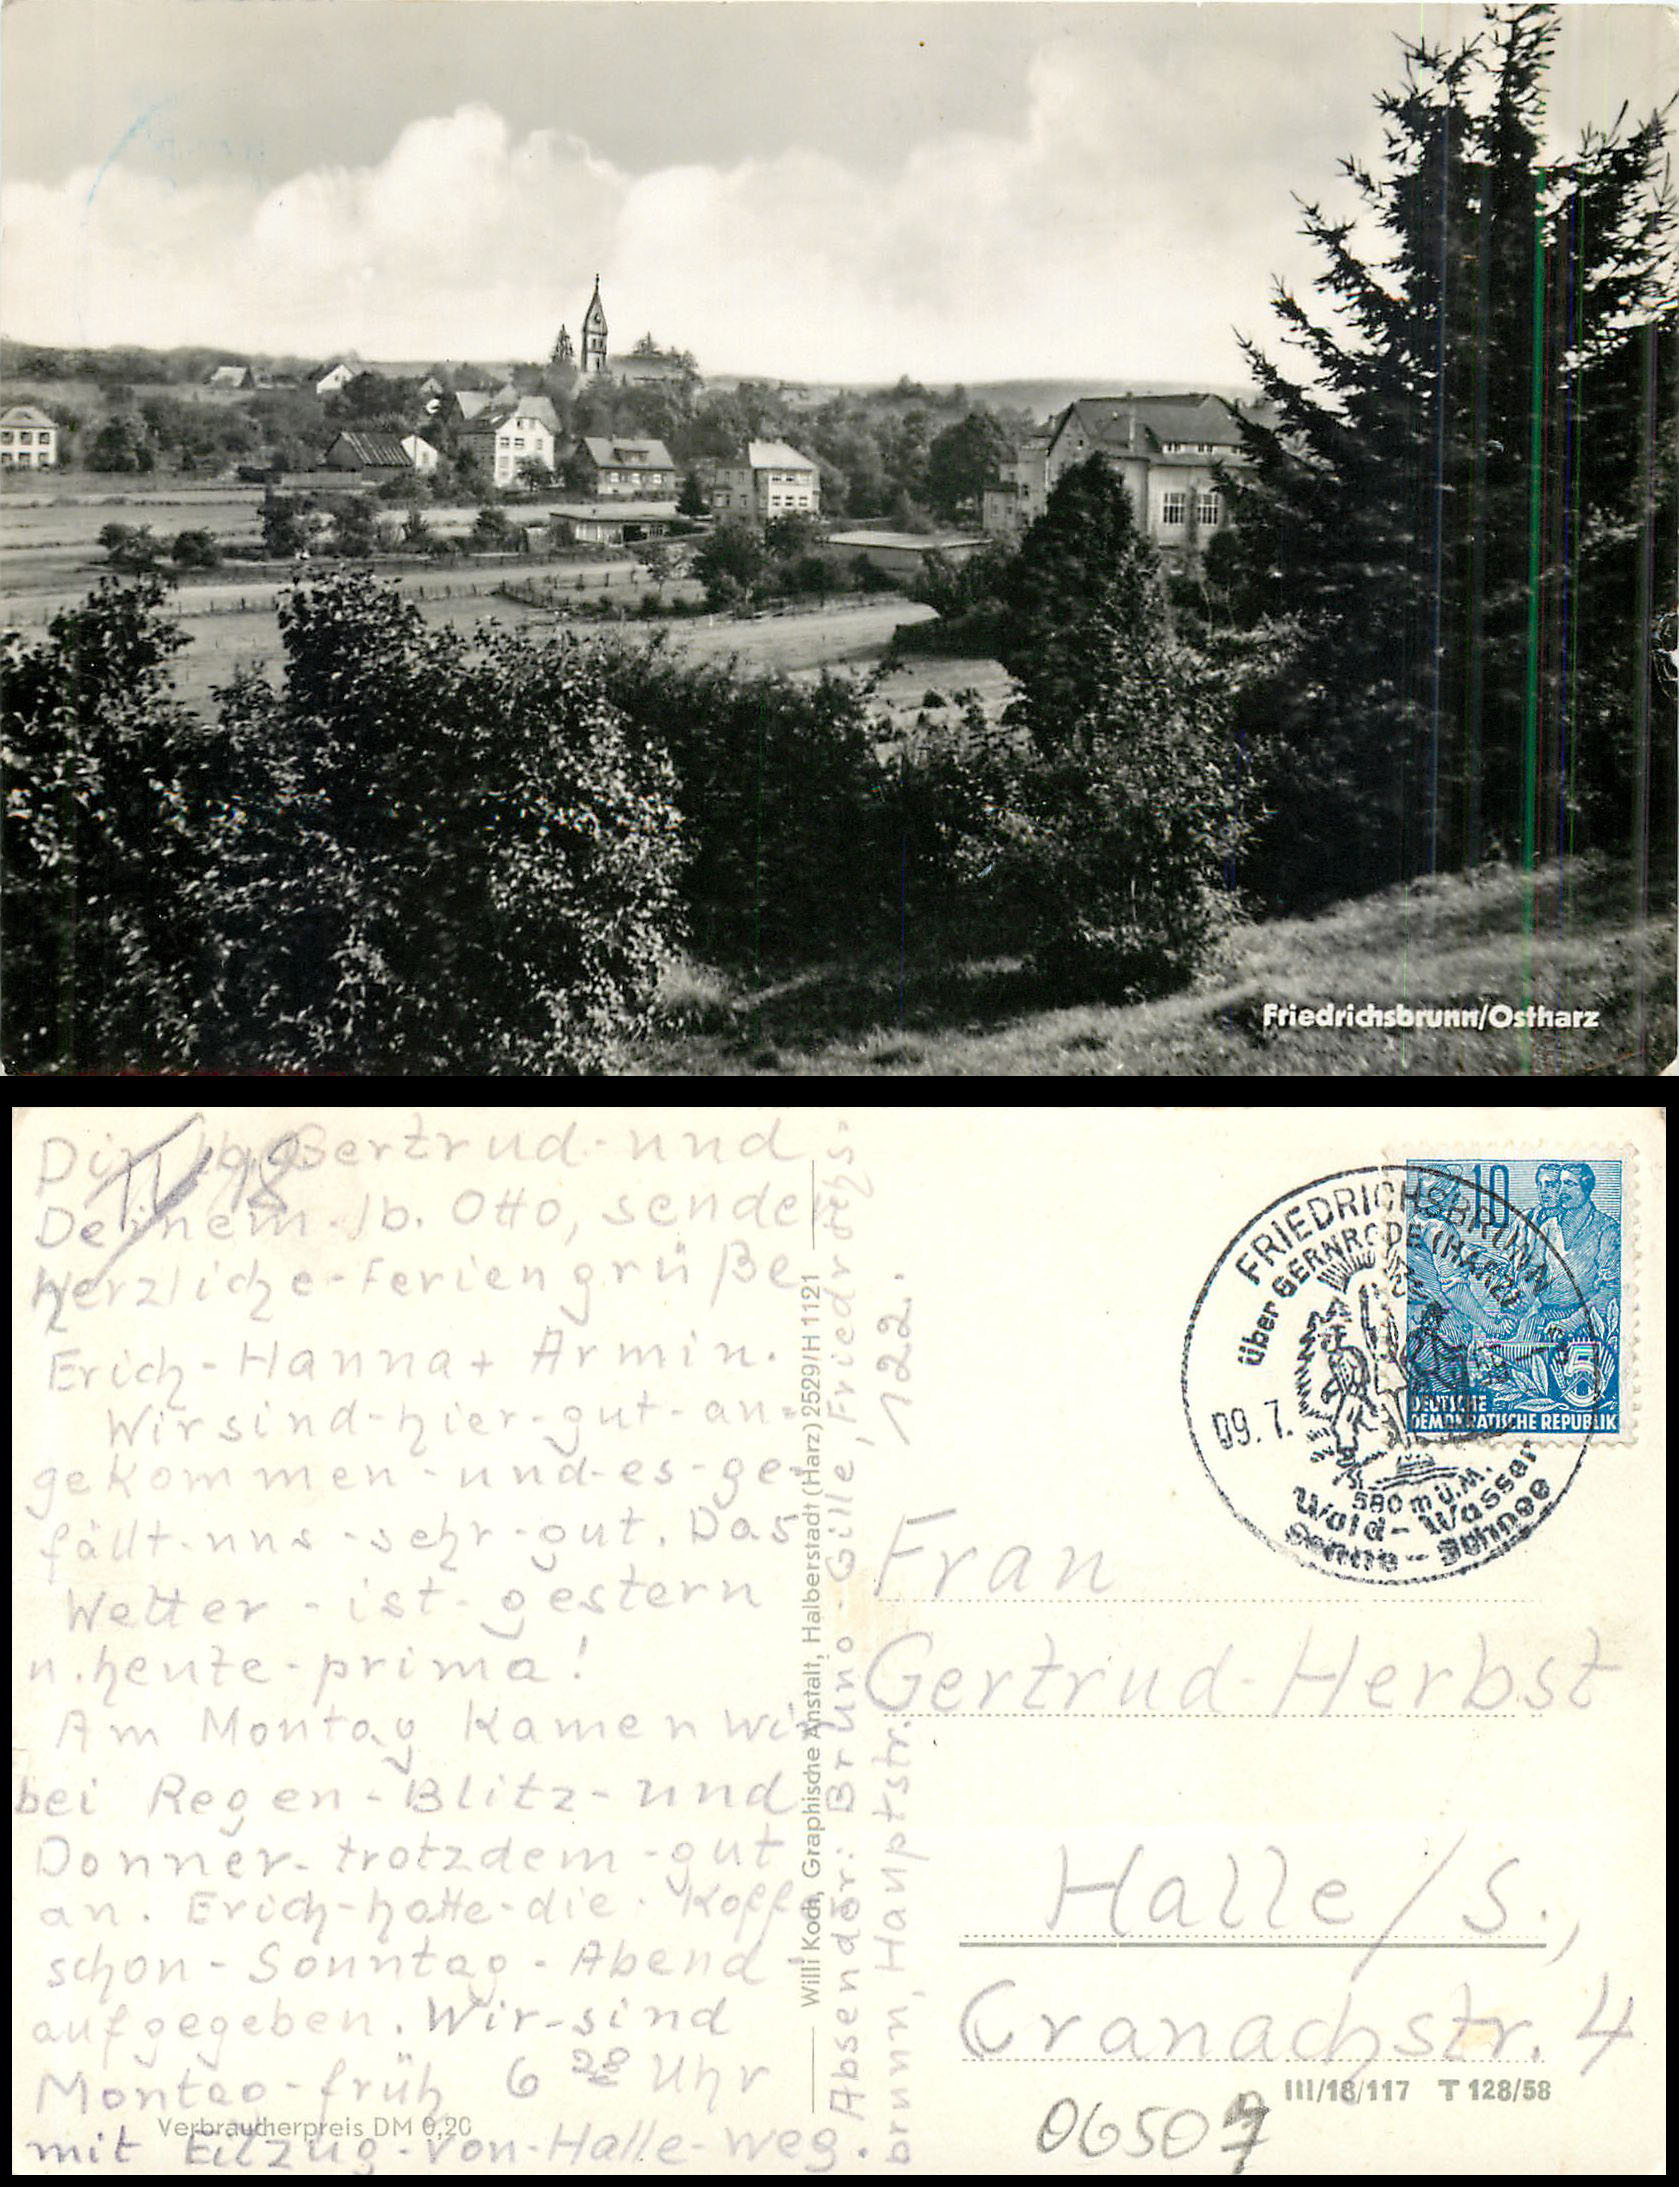 Friedrichsbrunn/Ostharz
Dir, lb. Gertrud-und
Deinem-lb. Otto, senden
herzliche-Feriengrüße
Erich-Hanna+Armin.
Wir sind-hier-gut-an-
gekommen-und-es-ge-
fällt-uns-sehr-gut. Das
Wetter-ist-gestern
u. heute-prima!
Am Montag kamen wir
bei Regen-Blitz-und
Donner-trotzdem-gut
an. Erich-hatte-die Koff.
schon-Sonntag-Abend
aufgegeben. Wir-sind
Montag-früh 6 28 Uhr
mit Eilzug-von-Halle-weg.
Verbraucherpreis DM 0,20
Willi Koch, Graphische Anstalt, Halberstadt (Harz) 2529/H 1121
Absender: Bruno-Gille, Friedrichs-
brunn, Hauptstr. 122.
FRIEDRICHSBRUNN
über GERNRODE (HARZ)
09.7.
580 m ü.M.
Wald-Wasser
Sonne-Schnee
10
5
DEUTSCHE
DEMOKRATISCHE REPUBLIK
Frau
Gertrud-Herbst
Halle/S.,
Cranachstr. 4
III/18/117 T 128/58